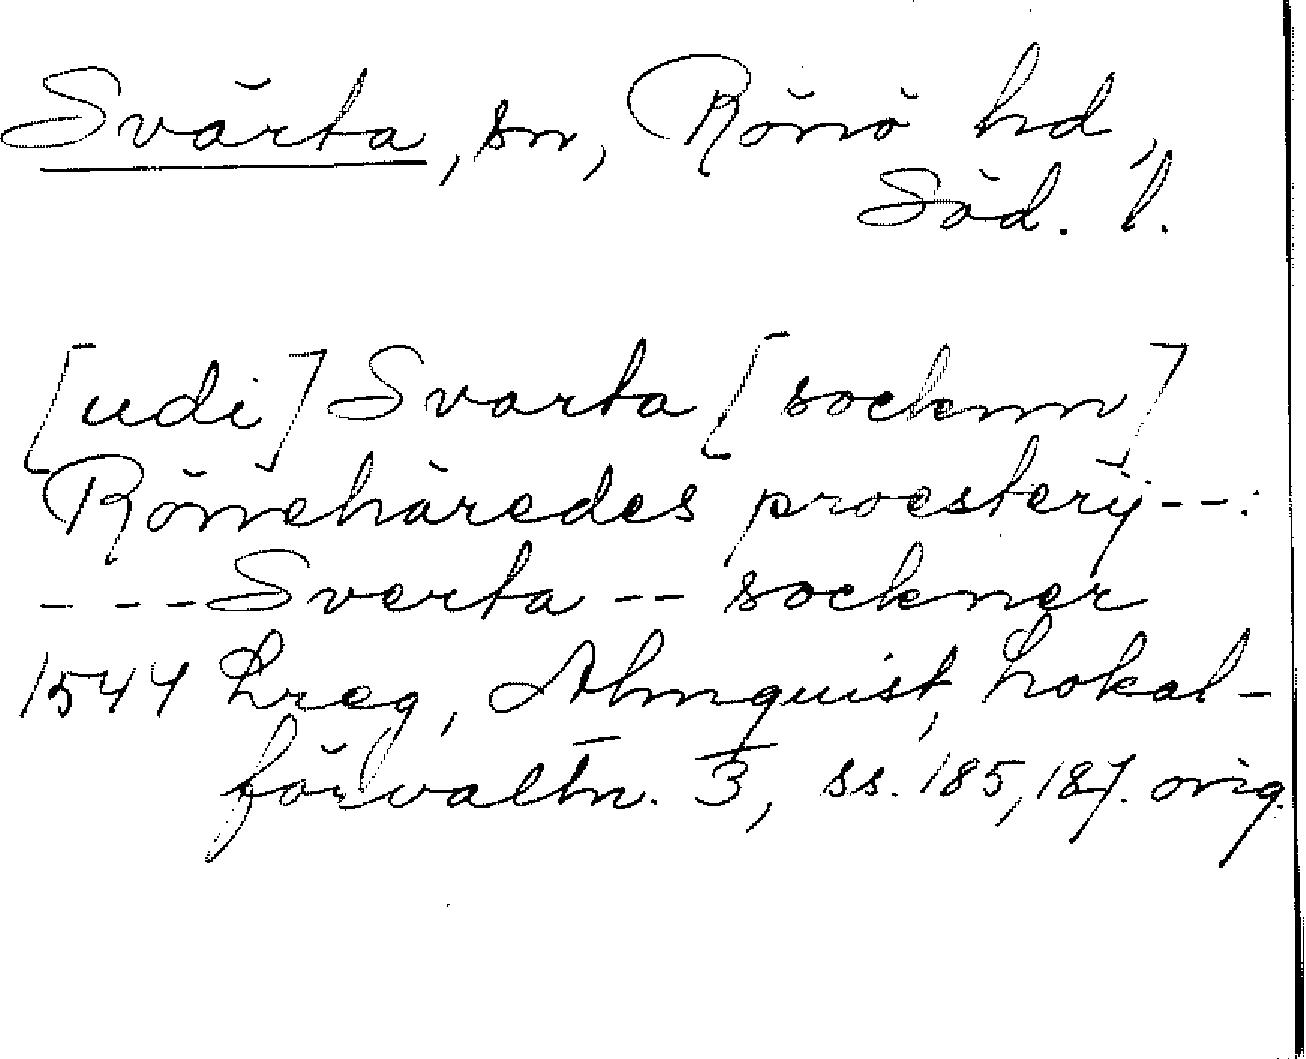 Svärta, sn, Rönö hd,
Söd. l.
[udi] Svarta [socknn]
Rönnehäredes proesterÿ --:
- - - Sverta -- sockner
1544 Lreg, Almquist, Lokal-
förvaltn. 3, ss. 185, 187. orig.